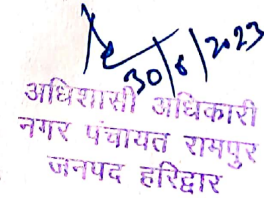 30/6/2023
अधिशासी अधिकारी
नगर पंचायत रामपुर
जनपद हरिद्वार